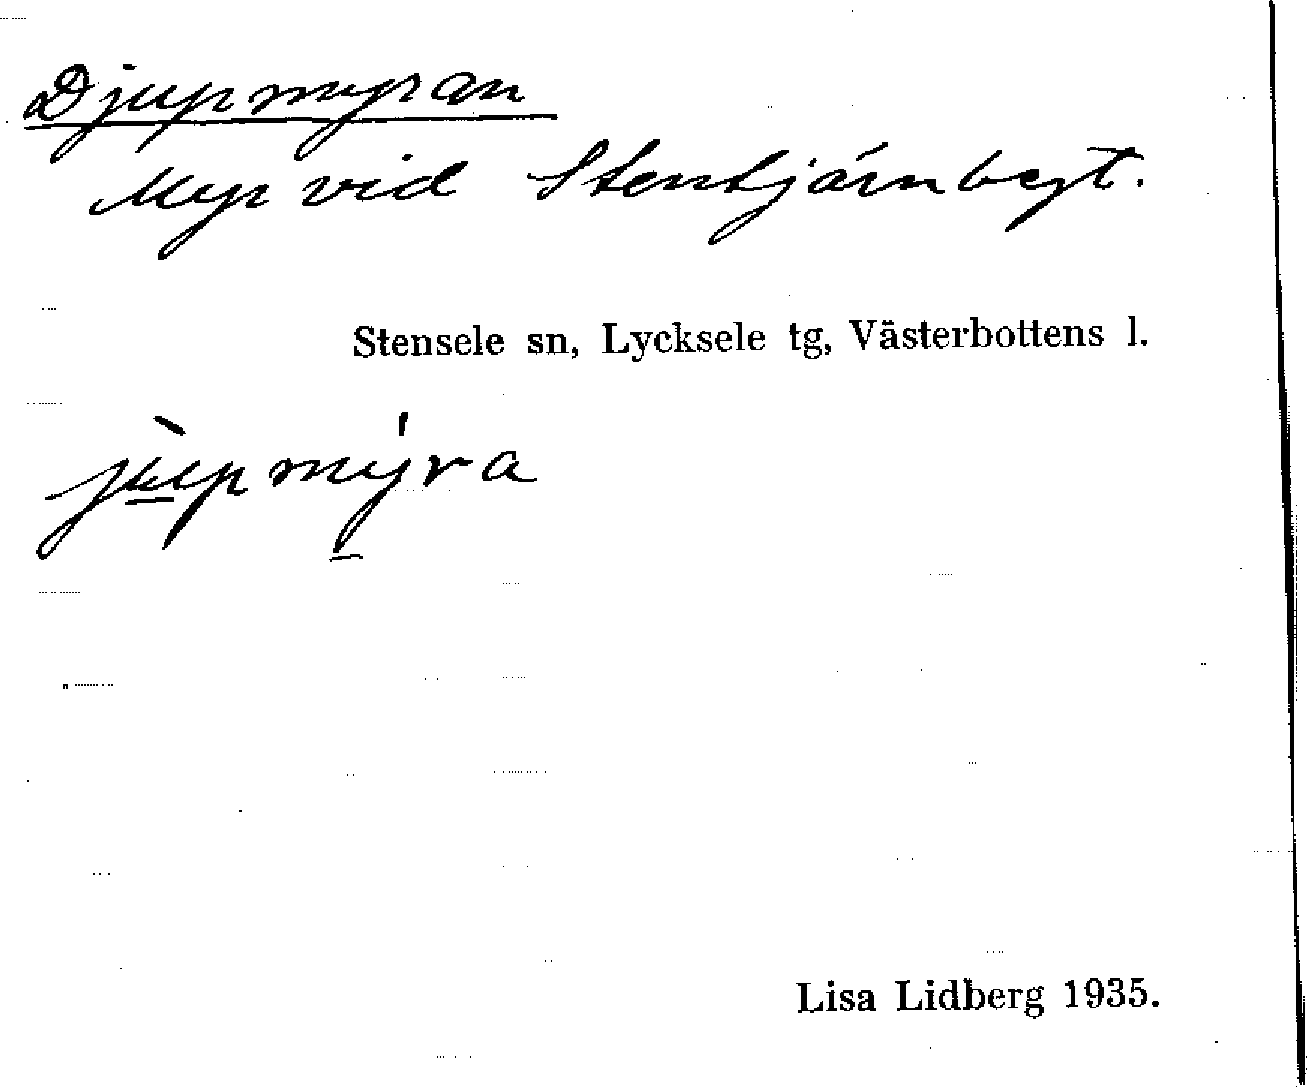 Djupmyran
Myr vid Stentjärn begt.
Stensele sn, Lycksele tg, Västerbottens l.
jùpmýra
Lisa Lidberg 1935.